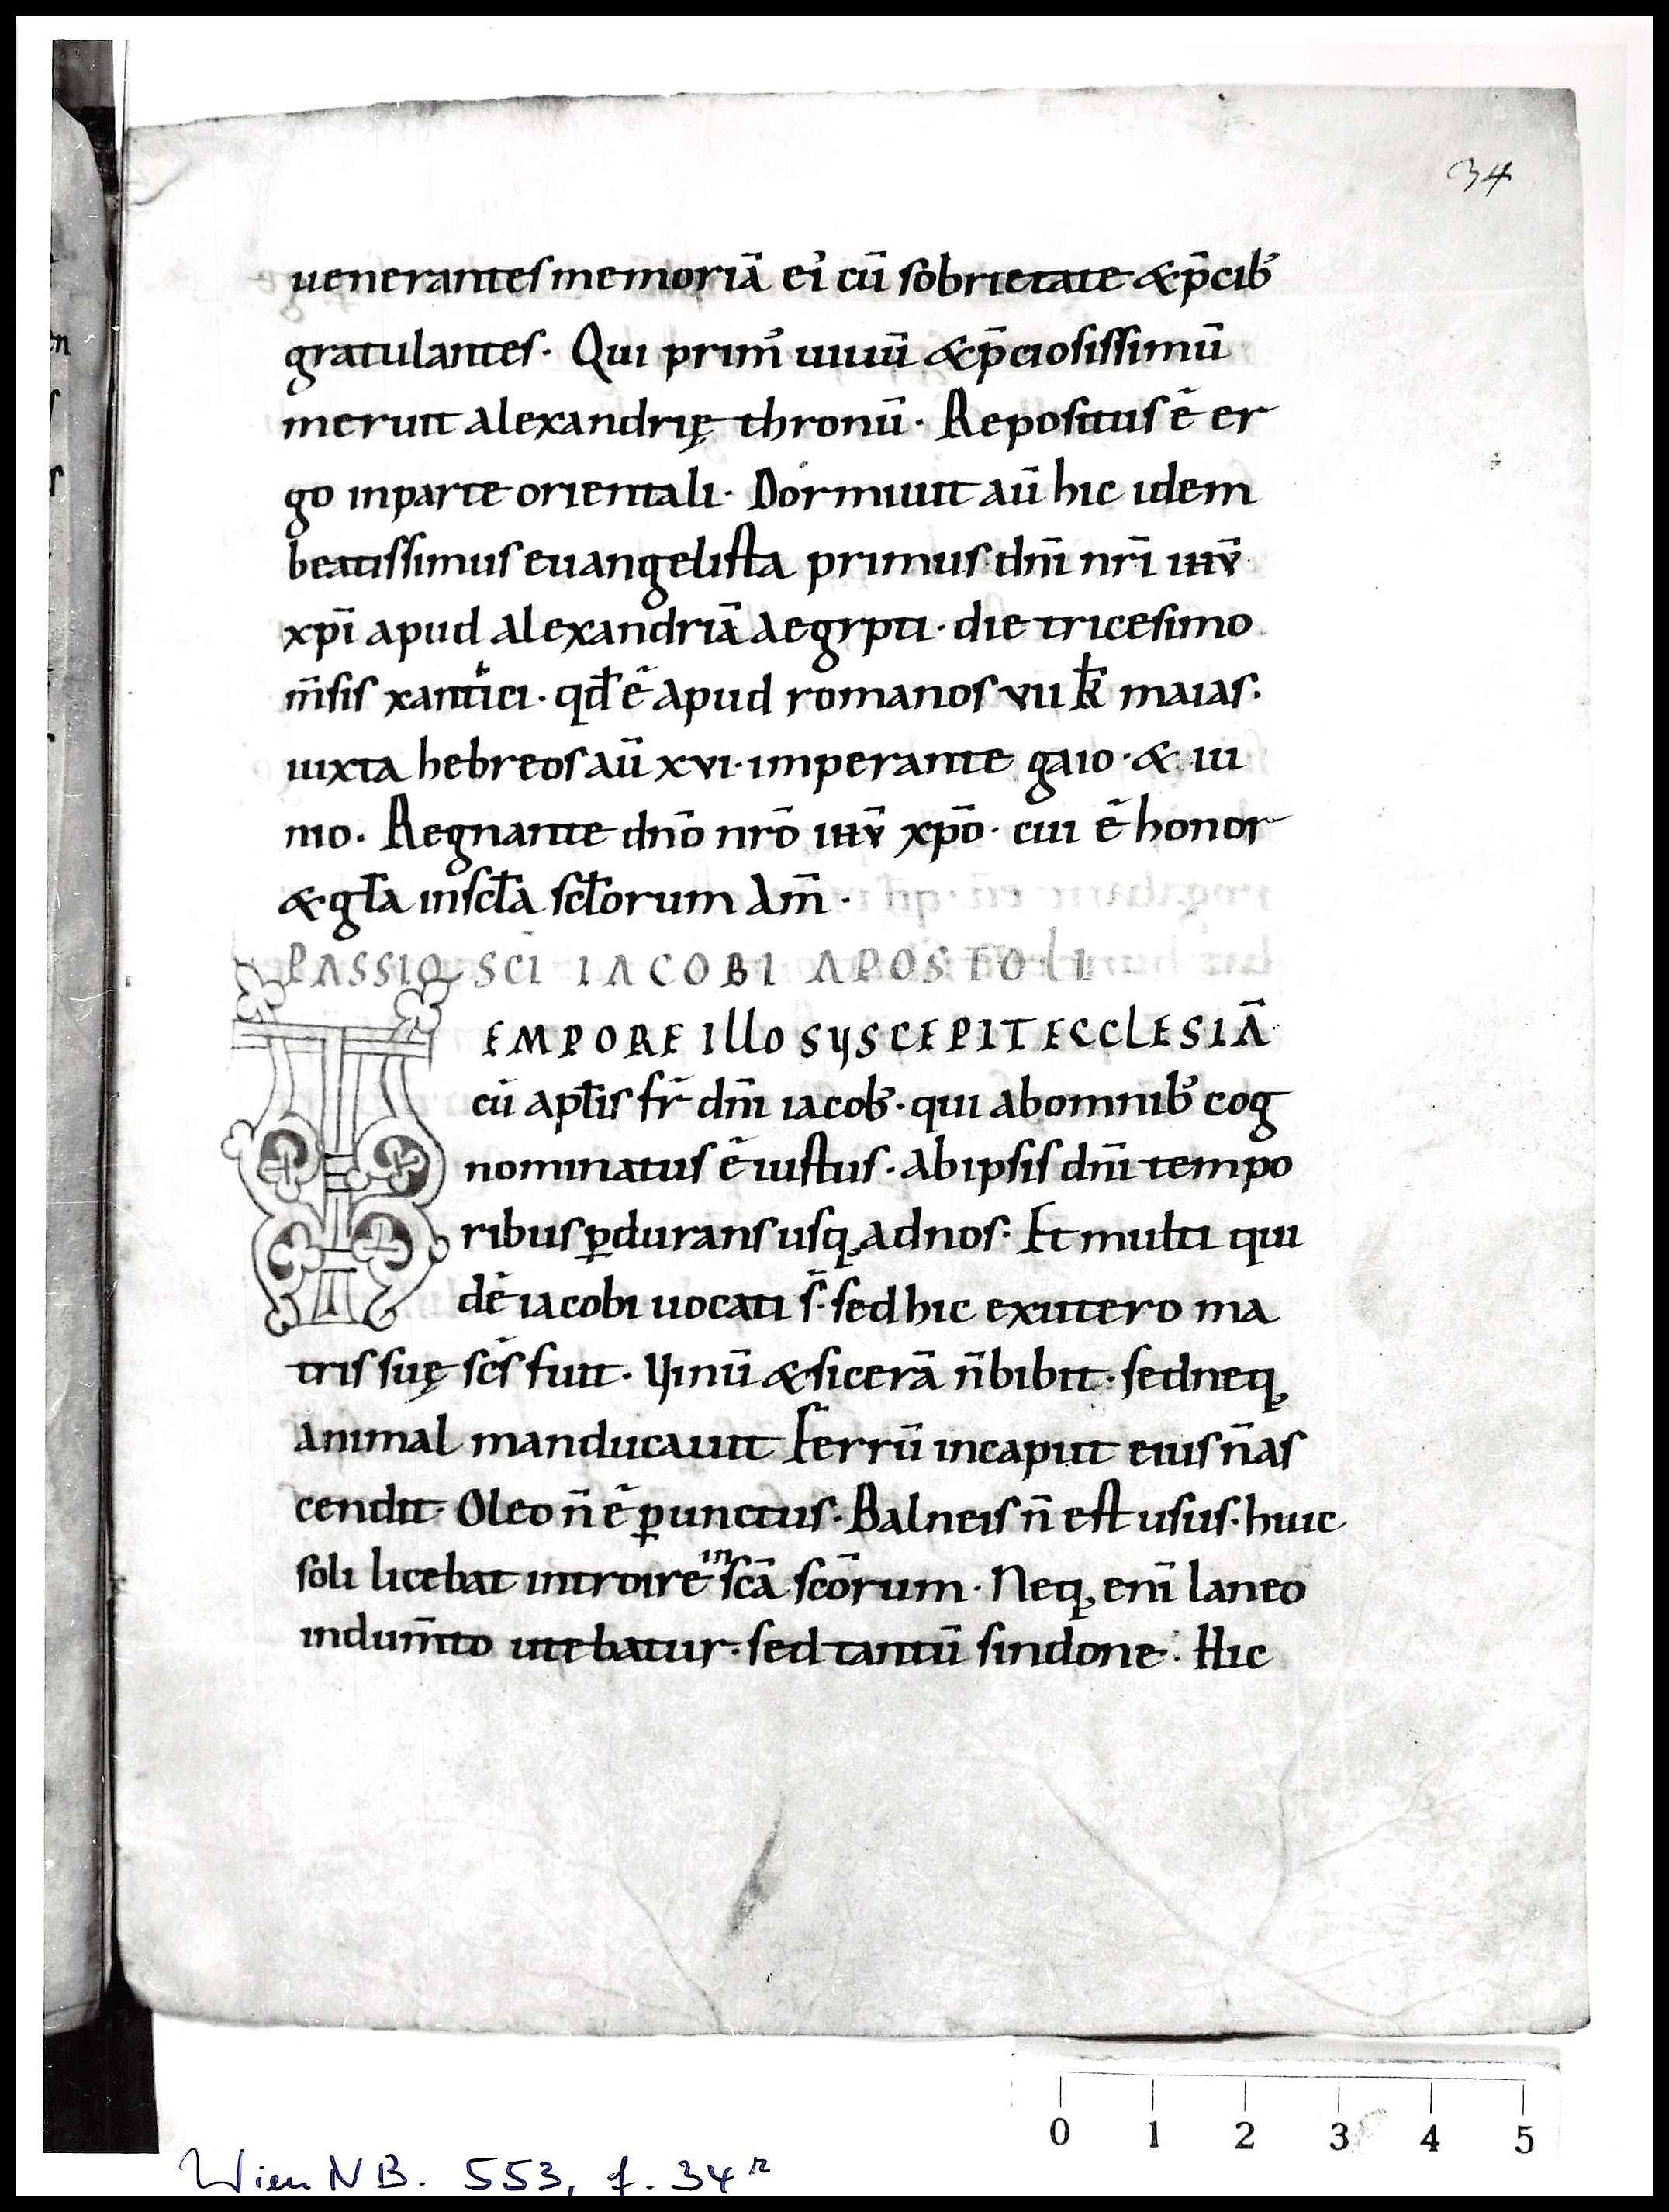 34
uenerantes memoriā ei᾽ cū sobrietate & p̄cib᾽
gratulantes. Qui prim᾽ uiuū & p̄ciosissimū
meruit alexandrię thronū. Repositus ē er
go inparte orientali. Dormiuit aū hic idem
beatissimus euangelista primus dn̄i nr̄i iħv̄
xp̄i apud alexandriā aegypti. die tricesimo
m̄sis xantici. qđ ē apud romanos vii k̄ maias.
iuxta hebreos aū xvi. imperante gaio. & iu
nio. Regnante dn̄o nr̄o iħv̄ xp̄o. cui ē honor
& gƚa inscƚa scƚorum am̄.
PASSIO SC̄I IACOBI APOSTOLI
TEMPORE Illo SUSCEPIT ECCLESIĀ
cū apƚis fr̄ dn̄i iacob᾽. qui abomnib᾽ cog
nominatus ē iustus. Abipsis dn̄i tempo
ribus ꝑdurans usq, adnos. Et multi qui
dē iacobi uocati s̄. sed hic exutero ma
tris suę sc̄s fuit. Vinū & sicerā n̄ bibit. sedneq,
animal manducauit ferrū incaput eius n̄ as
cendit. Oleo n̄ ē ꝑunctus. Balneis n̄ est usus. huic
soli licebat introire in sc̄ā sc̄orum. Neq, enī laneo
indum̄to utebatur. sed tantū sindone. Hic
0 1 2 3 4 5
Wien NB. 553, f. 34r